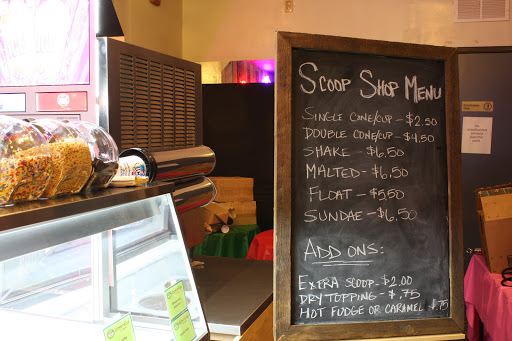 SCOOP SHOP MENU
SINGLE CONE/CUP - $2.50
DOUBLE CONE/CUP - $4.50
SHAKE - $6.50
MALTED - $6.50
FLOAT - $5.50
SUNDAE - $6.50
ADD ONS:
EXTRA SCOOP - $2.00
DRY TOPPING - $.75
HOT FUDGE OR CARAMEL $.75